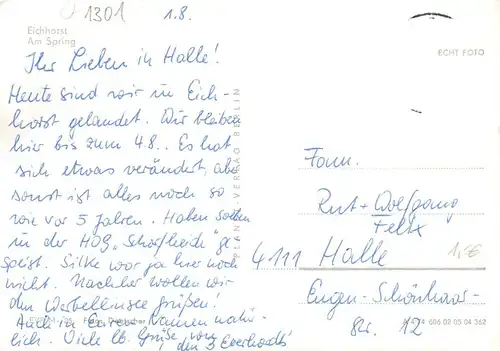 1301
1.8.
Eichhorst
Am Spring
ECHT FOTO
Ihr Lieben in Halle!
Heute sind wir in Eich-
horst gelandet. Wir bleiben
hier bis zum 4.8. Es hat
sich etwas verändert, aber
sonst ist alles noch so
wie vor 5 Jahren. Haben soeben
in der HOG „Schorfheide" ge-
speist. Silke war ja hier noch
nicht. Nachher wollen wir
den Werbellinsee grüßen!
Auch in Euren Namen natür-
lich. Viele lb. Grüße von
den 3 Eberhardts!
PLANET-VERLAG BERLIN
Fam.
Rut + Wolfgang
Felix
4111 Halle
Eugen-Schönhaar-
Str. 12
606 02 05 04 362